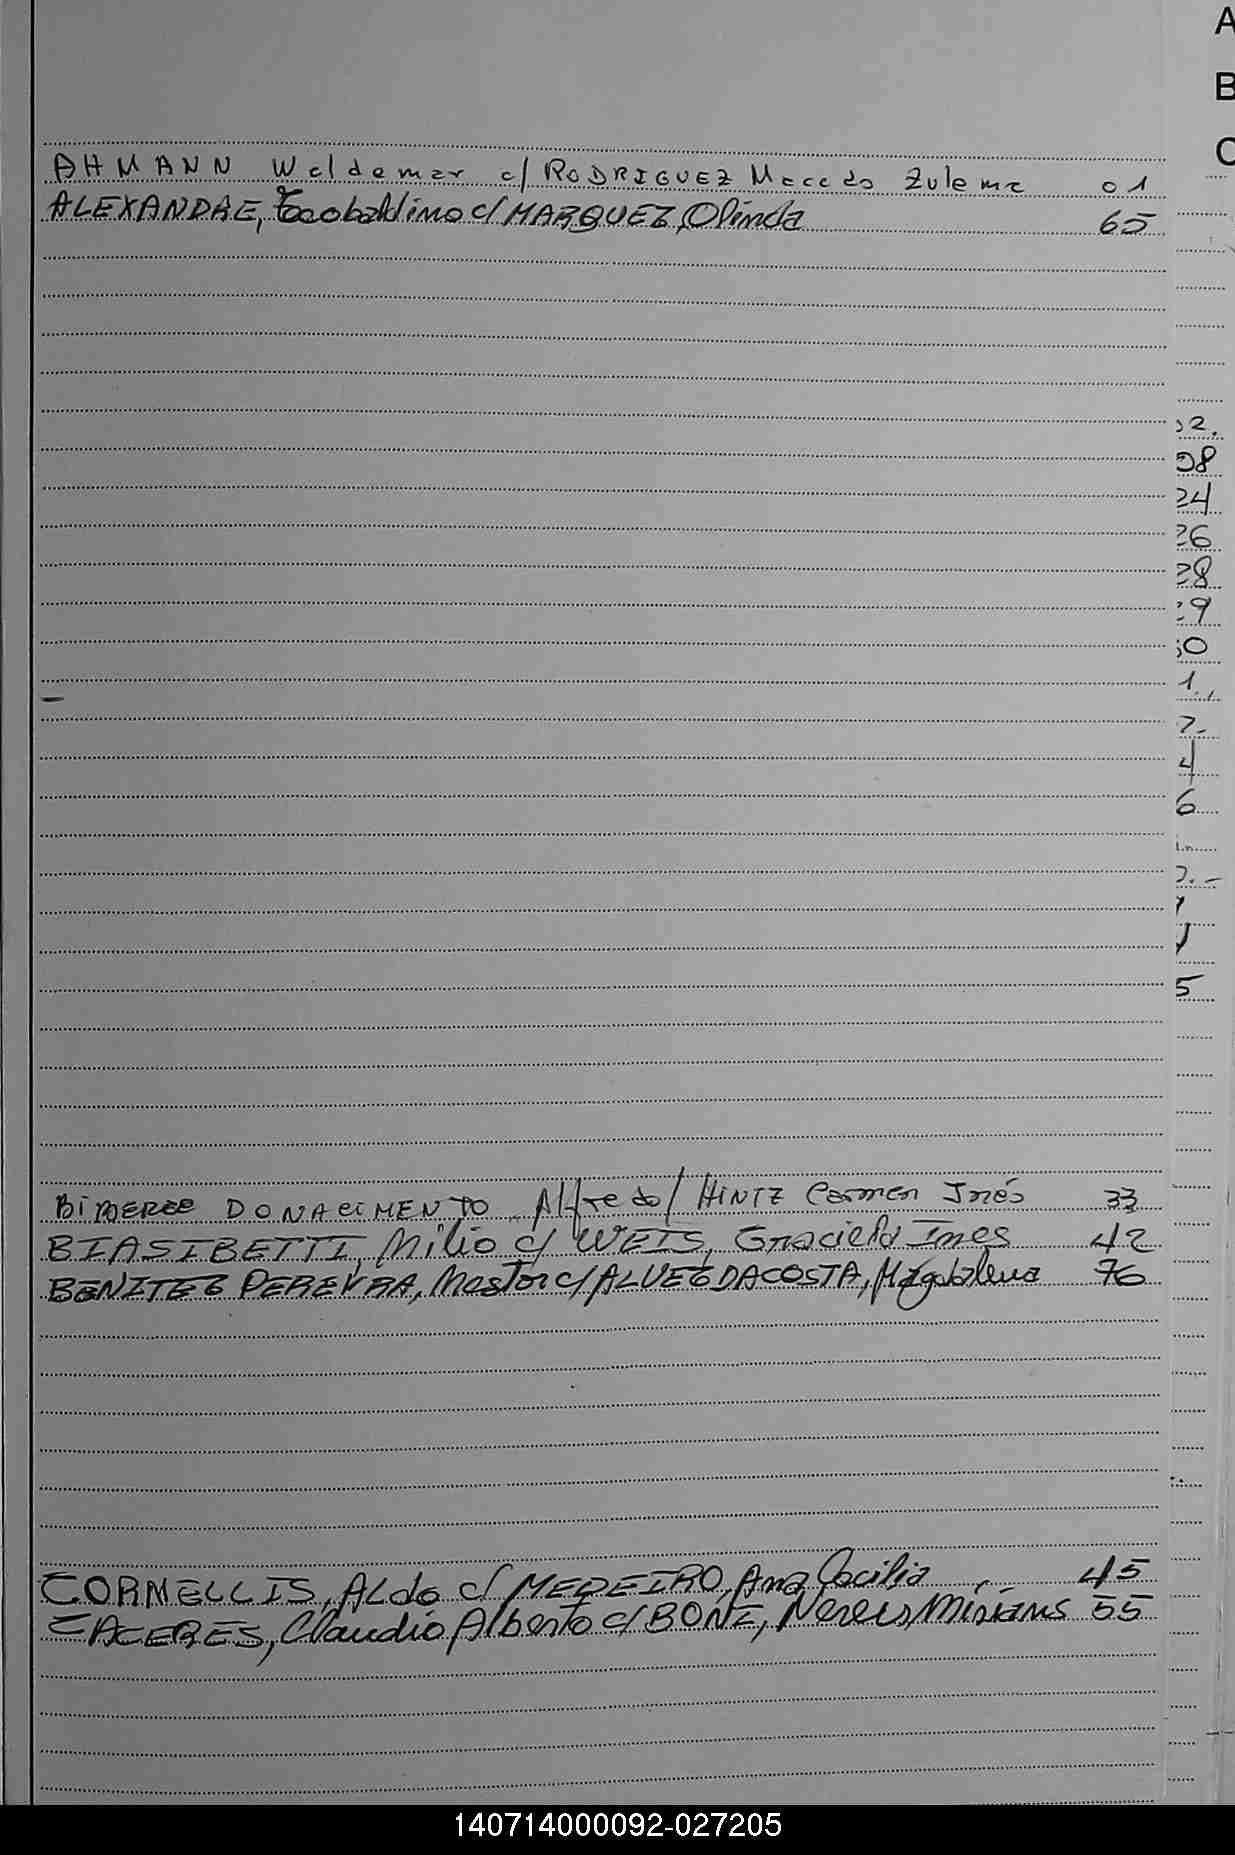 A
B
C
AHMANN Waldemar c/ RODRIGUEZ Macedo Zulema 01
ALEXANDRE, Teobaldino c/ MARQUEZ, Olinda 65
02.
08
24
26
28
29
30
1
7.
4
6
5
DONACIMENTO Alfredo / HINTZ Carmen Inés 33
BIASIBETTI, Milio c/ WEIS, Graciela Ines 42
BENITEZ PEREYRA, Nestor c/ ALVEZ DACOSTA, Magdalena 76
CORNELLIS, Aldo c/ MEDEIRO, Ana Cecilia 45
CACERES, Claudio Alberto c/ BONE, Nereis, Mirians 55
140714000092-027205